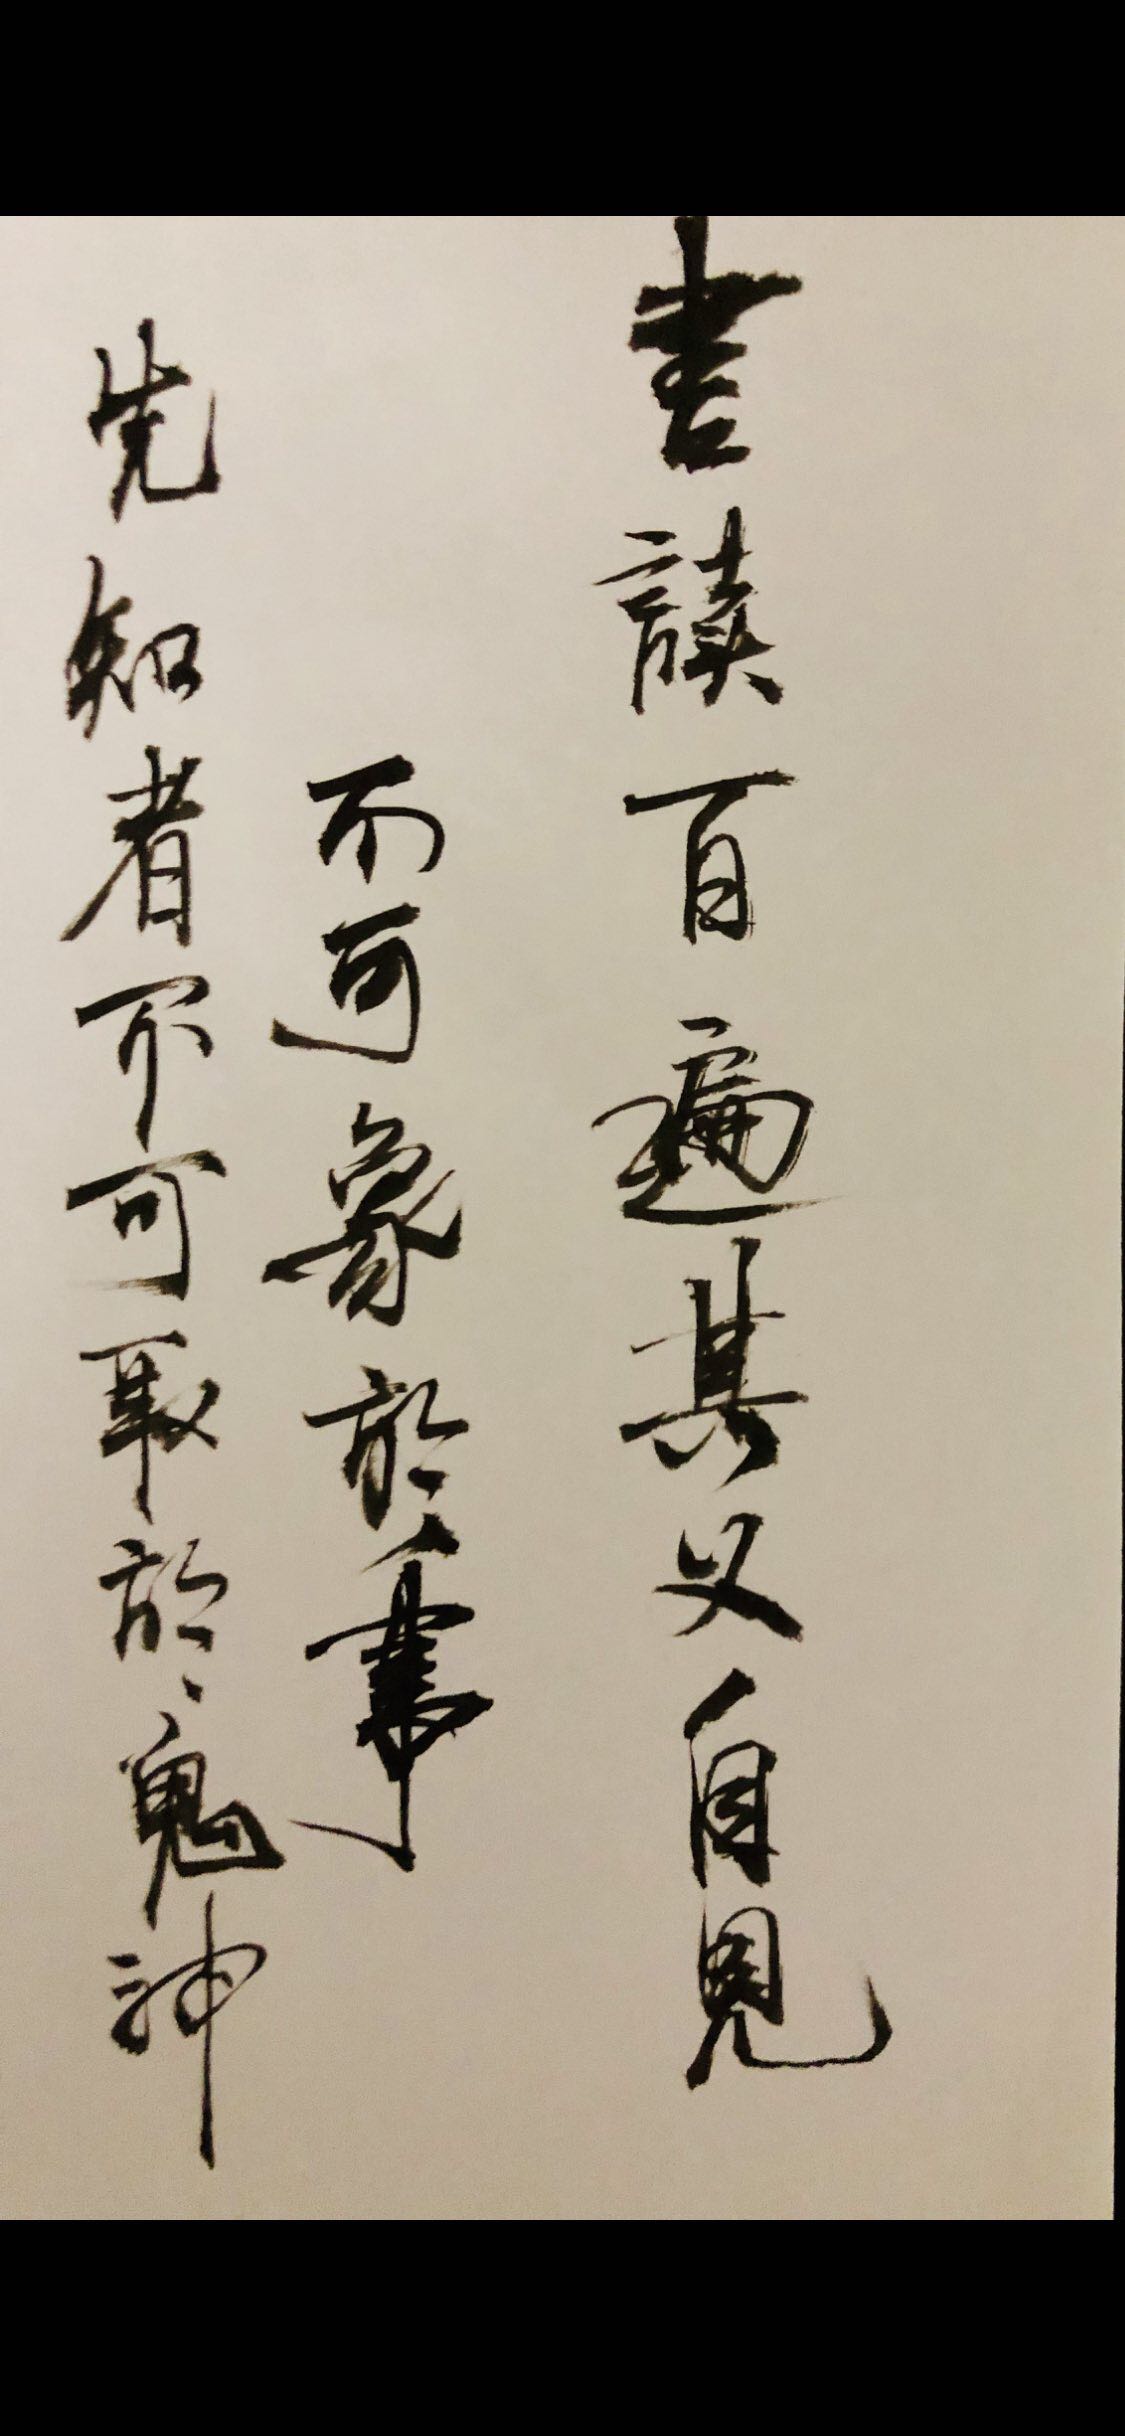 書讀百遍其义自見
不可象於事
先知者不可取於鬼神